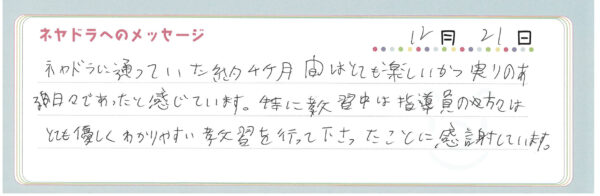 ネヤドラへのメッセージ 12月 21日
ネヤドラに通っていた約4ケ月間はとても楽しいかつ実りのあ
る日々であったと感じています。特に教習中は指導員の方々は
とても優しくわかりやすい教習を行って下さったことに感謝しています。